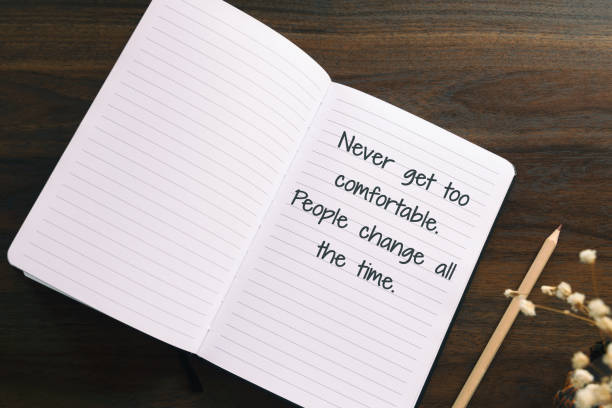 Never get too
comfortable.
People change all
the time.